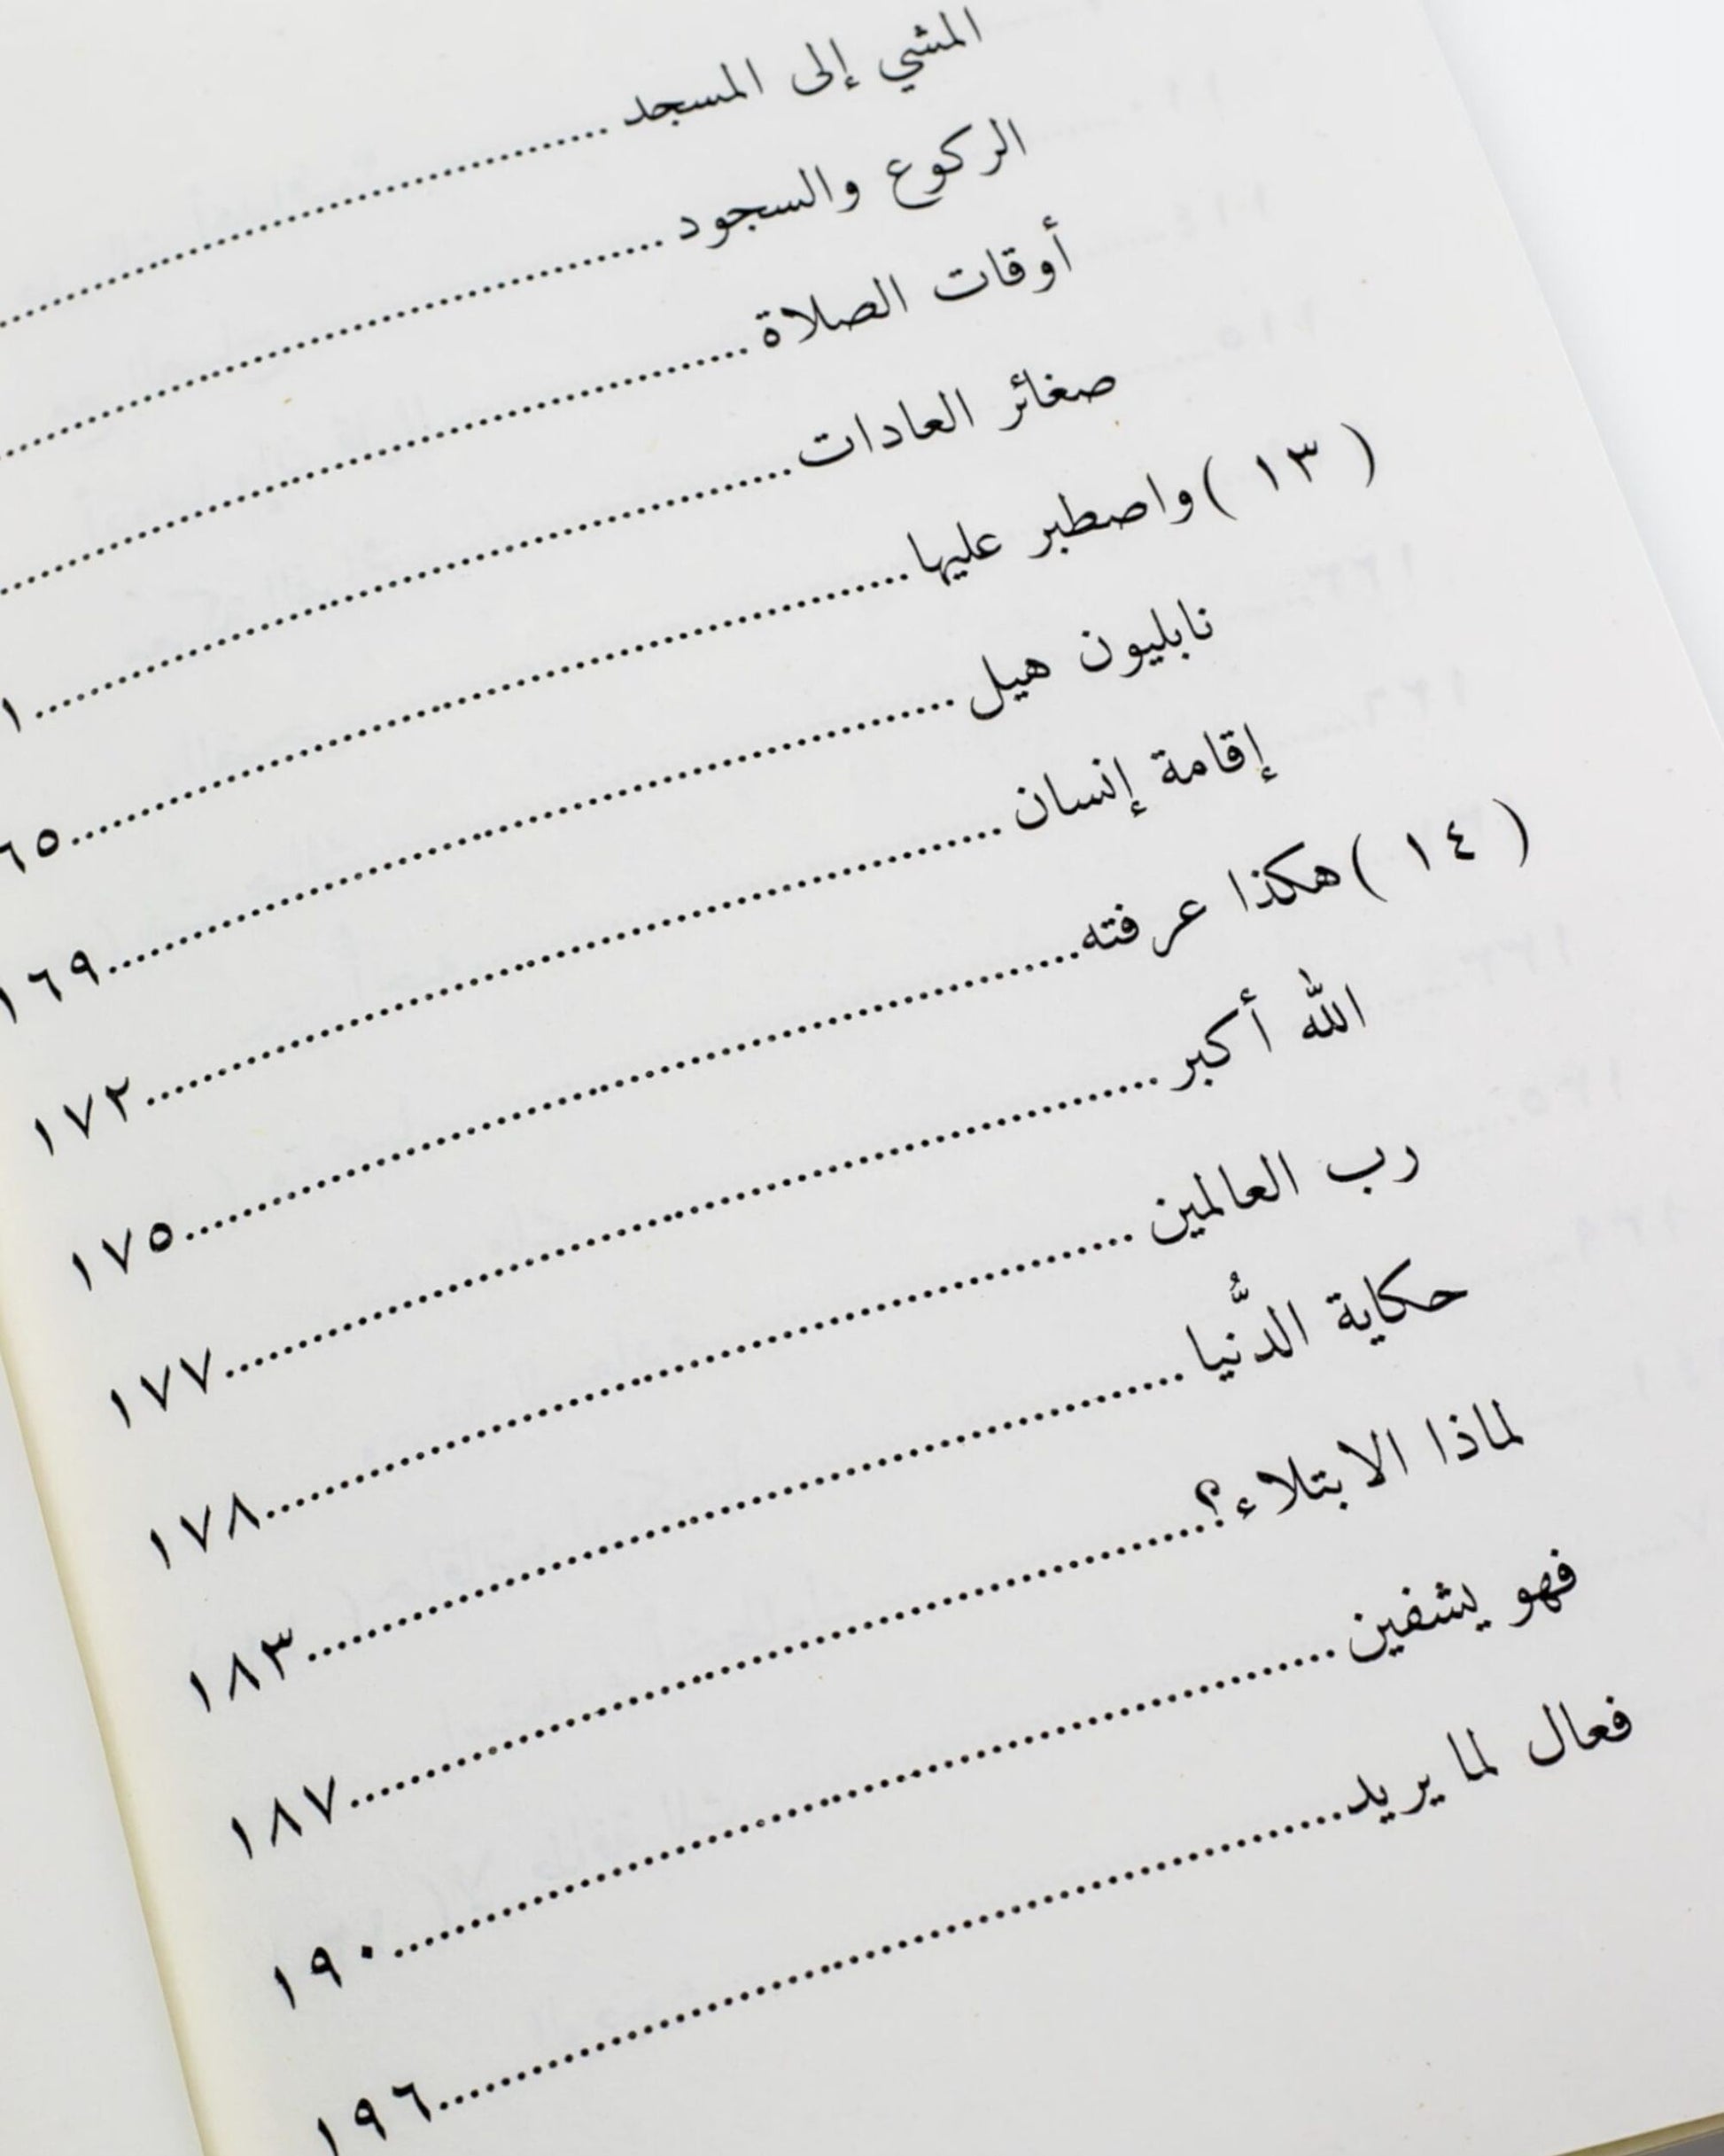 المشي إلى المسجد
الركوع والسجود
أوقات الصلاة
صغائر العادات ١
( ١٣ ) واصطبر عليها ٦٥
نابليون هيل ١٦٩
إقامة إنسان ١٧٢
( ١٤ ) هكذا عرفته ١٧٥
الله أكبر ١٧٧
رب العالمين ١٧٨
حكاية الدُّنيا ١٨٣
لماذا الابتلاء؟ ١٨٧
فهو يشفين ١٩٠
فعال لما يريد ١٩٦